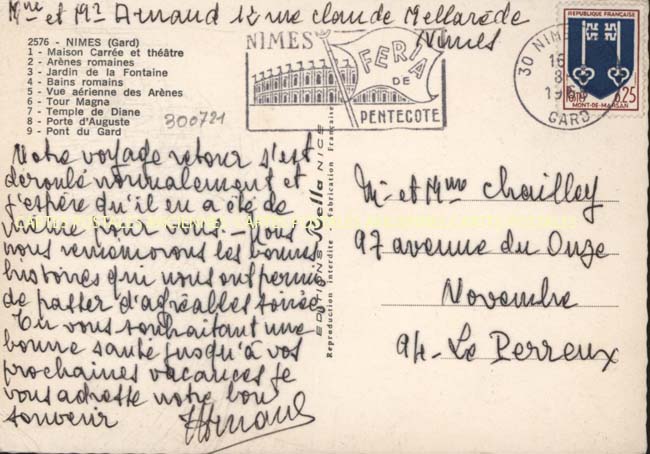 Mme et Mr Arnaud 12 rue Claude Mellarède
Nimes
2576 - NIMES (Gard)
1 - Maison Carrée et théâtre
2 - Arènes romaines
3 - Jardin de la Fontaine
4 - Bains romains
5 - Vue aérienne des Arènes
6 - Tour Magna
7 - Temple de Diane
8 - Porte d'Auguste
9 - Pont du Gard
300721
NIMES
FERIA
DE
PENTECOTE
30 NIMES
16
8
GARD
REPUBLIQUE FRANÇAISE
0,25
MONT-DE-MARSAN
Notre voyage retour s'est
déroulé normalement et
j'espère qu'il en a été de
même pour vous - Nous
nous remémorons les bonnes
histoires qui nous ont permis
de passer d'agréables soirées
En vous souhaitant une
bonne santé jusqu'à vos
prochaines vacances je
vous adresse notre bon
souvenir
HArnaud
EDITIONS Mella NICE
Reproduction interdite - Fabrication Française
Mr et Mme Chailley
97 avenue du Onze
Novembre
94- Le Perreux